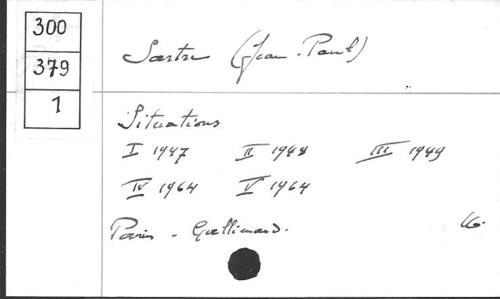 300
379
1
Sartre (Jean-Paul)
Situations
I 1947 II 1948 III 1949
IV 1964 V 1964
Paris - Gallimard.